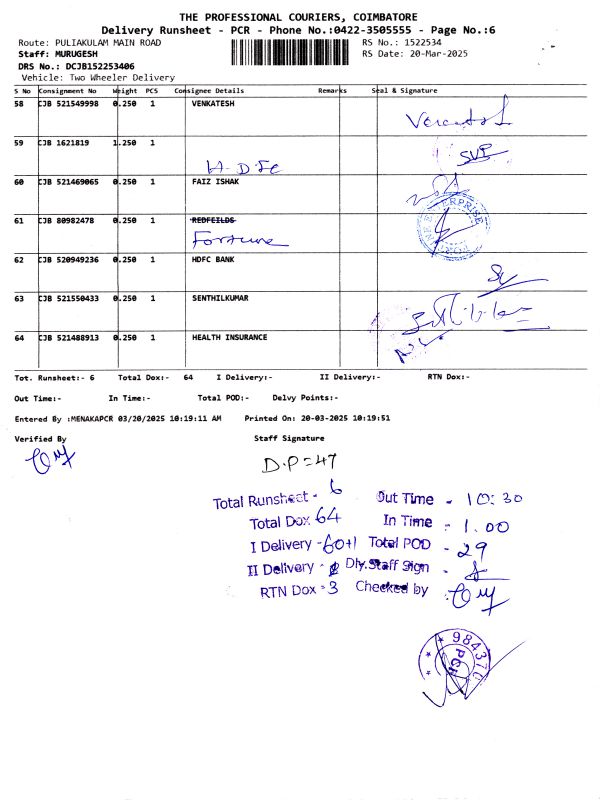 THE PROFESSIONAL COURIERS, COIMBATORE
Delivery Runsheet - PCR - Phone No.:0422-3505555 - Page No.:6
Route: PULIAKULAM MAIN ROAD RS No.: 1522534
Staff: MURUGESH RS Date: 20-Mar-2025
DRS No.: DCJB152253406
Vehicle: Two Wheeler Delivery
S No Consignment No Weight PCS Consignee Details Remarks Seal & Signature
58 CJB 521549998 0.250 1 VENKATESH
59 CJB 1621819 1.250 1
H-DFC SVP
60 CJB 521469065 0.250 1 FAIZ ISHAK
61 CJB 80982478 0.250 1 REDFEILDS
Fortune
62 CJB 520949236 0.250 1 HDFC BANK
63 CJB 521550433 0.250 1 SENTHILKUMAR
64 CJB 521488913 0.250 1 HEALTH INSURANCE
Tot. Runsheet:- 6 Total Dox:- 64 I Delivery:- II Delivery:- RTN Dox:-
Out Time:- In Time:- Total POD:- Delvy Points:-
Entered By :MENAKAPCR 03/20/2025 10:19:11 AM Printed On: 20-03-2025 10:19:51
Verified By Staff Signature
D.P=47
Total Runsheet - 6 Out Time - 10:30
Total Dox 64 In Time - 1.00
I Delivery - 60+1 Total POD - 29
II Delivery - Dly.Staff Sign -
RTN Dox - 3 Checked by
984370
PCR